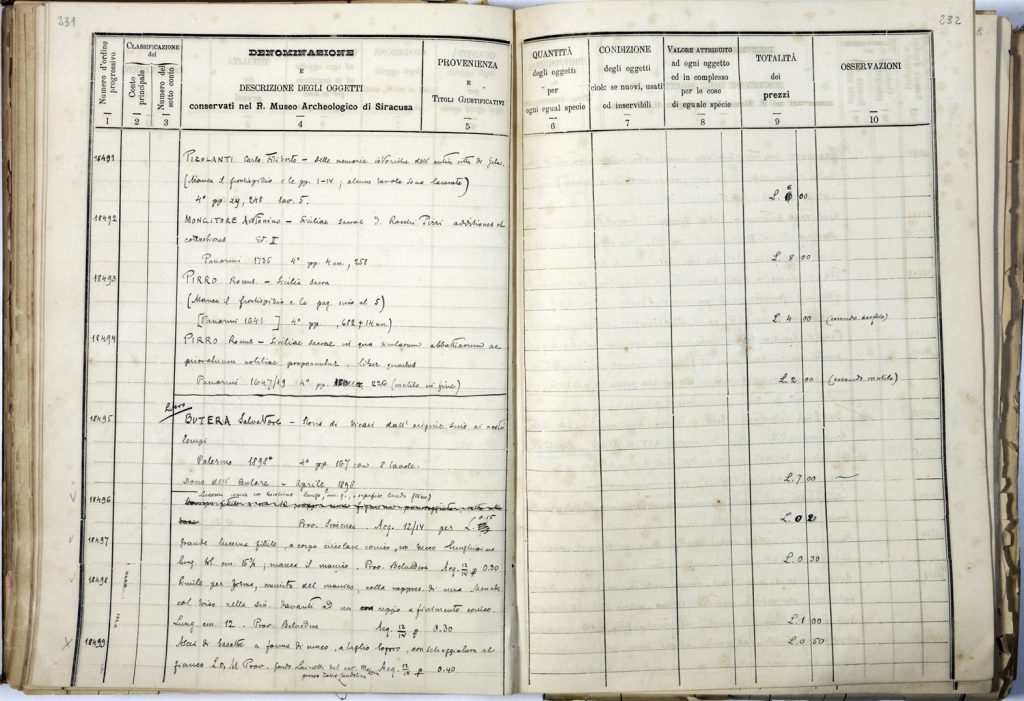 231
232
Numero d'ordine progressivo
CLASSIFICAZIONE del
Conto principale
Numero del sotto conto
DENOMINAZIONE
E
DESCRIZIONE DEGLI OGGETTI
conservati nel R. Museo Archeologico di Siracusa
PROVENIENZA
E
TITOLI GIUSTIFICATIVI
QUANTITÀ
degli oggetti
per
ogni egual specie
CONDIZIONE
degli oggetti
cioè: se nuovi, usati
od inservibili
VALORE ATTRIBUITO
ad ogni oggetto
ed in complesso
per le cose
di eguale specie
TOTALITÀ
dei
prezzi
OSSERVAZIONI
1 2 3 4 5 6 7 8 9 10
18491 Carlo Filiberto – delle memorie istoriche dell'antica città di Gela
(Manca il frontispizio e le pp. I-IV; alcune tavole sono lacerate)
4° pp. 24, 248 tav. 5. L. 6 00
18492 MONGITORE Antonino – Siciliae sacrae D. Rocchi Pirri additiones et
correctiones Ed. I
Panormi 1735 4° pp. 4 nn., 258 L. 8 00
18493 PIRRO Rocus. – Sicilia sacra
(Manca il frontispizio e le pag. sino al 5)
[Panormi 1641] 4° pp. , 682 + 14 nn.) L. 4 00
18494 PIRRO Rocus – Siciliae sacrae, in qua abbatiarum ac
prioratuum notitiae proponuntur. liber quartus
Panormi 1647/49 4° pp. 226 (mutilo in fine) L. 2 00 (essendo mutilo)
18495 BUTERA Salvatore – Storia di Vicari dall'origine sino ai nostri
tempi
Palermo 1898 4° pp. 167 con 8 tavole.
Dono dell'Autore – Aprile, 1898 L. 7 00 —
18496 Lucerna
Prov. Siracusa. Acq. 12/IV per L. 0.15 L. 0 20
18497 Grande lucerna fittile, a corpo circolare conico, con becco
lung. cm. 15½; manca il manico. Prov. Belvedere Acq. 12/IV 0.30 L. 0 30
18498 Simile per forma, munita del manico, colla rappres. di una
col tirso nella sin. davanti ad un ceppo a finimento conico.
Lung. cm. 12. Prov. Belvedere Acq. 12/IV 0.30 L. 1 00
18499 Ascia di basalto a forma di cuneo, a taglio logoro, con scheggiatura al L. 0 50
fianco Prov. fondo del cav. Acq. 12/IV 0.40